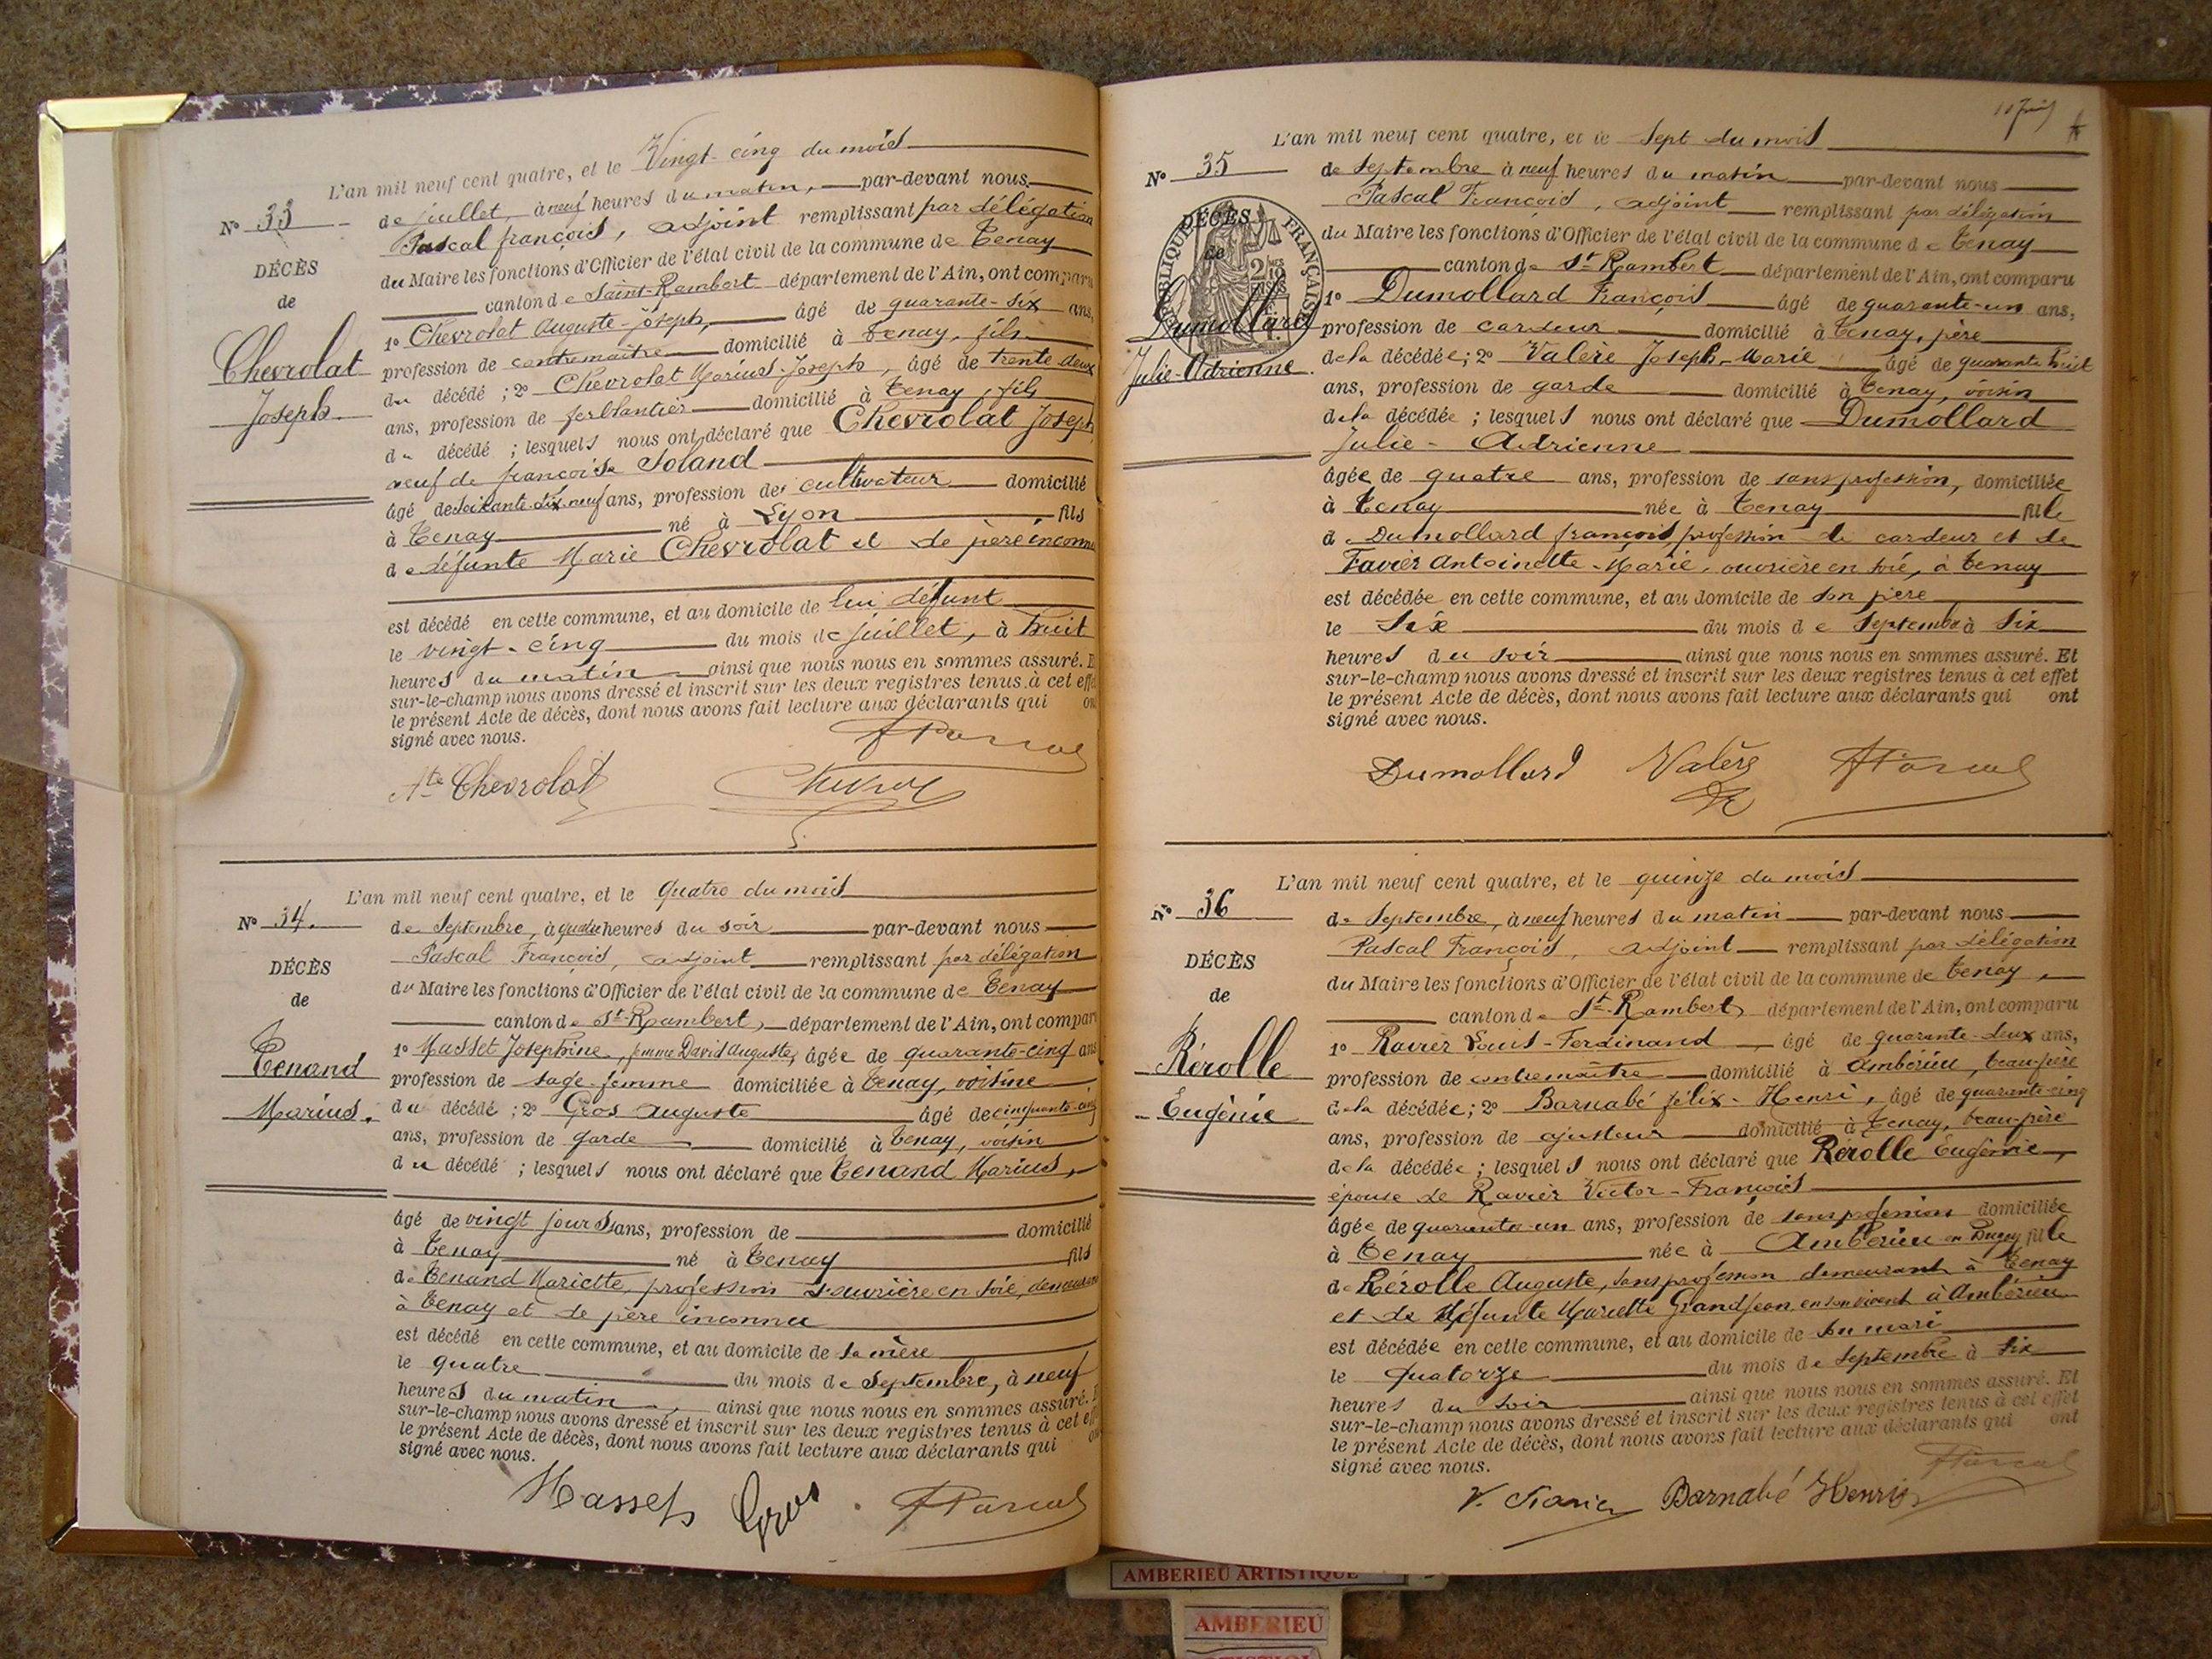 L'an mil neuf cent quatre, et le Vingt-cinq du mois
N° 33
de juillet, à neuf heures du matin, par-devant nous
Pascal françois, adjoint remplissant par délégation
du Maire les fonctions d'Officier de l'état civil de la commune de Tenay
canton de Saint-Rambert département de l'Ain, ont comparu
DÉCÈS
de
Chevrolat
Joseph
1° Chevrolat Auguste-Joseph, âgé de quarante-six ans,
profession de contremaître domicilié à Tenay, fils
du décédé ; 2° Chevrolat Marius-Joseph, âgé de trente deux
ans, profession de ferblantier domicilié à Tenay, fils
du décédé ; lesquels nous ont déclaré que Chevrolat Joseph
veuf de françoise Joland
âgé de soixante-dix-neuf ans, profession de cultivateur domicilié
à Tenay né à Lyon fils
de défunte Marie Chevrolat et de père inconnu
est décédé en cette commune, et au domicile de lui défunt
le vingt-cinq du mois de juillet, à huit
heures du matin ainsi que nous nous en sommes assuré. E
sur-le-champ nous avons dressé et inscrit sur les deux registres tenus à cet effe
le présent Acte de décès, dont nous avons fait lecture aux déclarants qui on
signé avec nous.
Ate Chevrolat
L'an mil neuf cent quatre, et le quatre du mois
N° 34.
de Septembre, à quatre heures du soir par-devant nous
Pascal François, adjoint remplissant par délégation
du Maire les fonctions d'Officier de l'état civil de la commune de Tenay
canton de St-Rambert, département de l'Ain, ont compar
DÉCÈS
de
Tenand
Marius.
1° Masset Josephine, femme David Auguste, âgée de quarante-cinq ans
profession de sage-femme domiciliée à Tenay, voisine
du décédé ; 2° Gros Auguste âgé de cinquante-cinq
ans, profession de garde domicilié à Tenay, voisin
du décédé ; lesquels nous ont déclaré que Tenand Marius,
âgé de vingt jours ans, profession de domicilié
à Tenay né à Tenay fils
de Tenand Mariette, profession d'ouvrière en soie, demeurant
à Tenay et de père inconnu
est décédé en cette commune, et au domicile de sa mère
le quatre du mois de Septembre, à neuf
heures du matin, ainsi que nous nous en sommes assuré.
sur-le-champ nous avons dressé et inscrit sur les deux registres tenus à cet eff
le présent Acte de décès, dont nous avons fait lecture aux déclarants qui on
signé avec nous.
Masset Gros FPascal
L'an mil neuf cent quatre, et le sept du mois
N° 35
de Septembre à neuf heures du matin par-devant nous
Pascal François, adjoint remplissant par délégation
du Maire les fonctions d'Officier de l'état civil de la commune de Tenay
canton de St-Rambert département de l'Ain, ont comparu
RÉPUBLIQUE FRANÇAISE
DÉCÈS
de
Dumollard
Julie-Adrienne
1° Dumollard François âgé de quarante-un ans,
profession de cardeur domicilié à Tenay, père
de la décédée ; 2° Valère Joseph-Marie âgé de quarante huit
ans, profession de garde domicilié à Tenay, voisin
de la décédée ; lesquels nous ont déclaré que Dumollard
Julie-Adrienne
âgée de quatre ans, profession de sans profession, domiciliée
à Tenay née à Tenay fille
de Dumollard françois, profession de cardeur et de
Favier Antoinette-Marie, ouvrière en soie, à Tenay
est décédée en cette commune, et au domicile de son père
le Six du mois de Septembre à six
heures du soir ainsi que nous nous en sommes assuré. Et
sur-le-champ nous avons dressé et inscrit sur les deux registres tenus à cet effet
le présent Acte de décès, dont nous avons fait lecture aux déclarants qui ont
signé avec nous.
Dumollard Valère FPascal
L'an mil neuf cent quatre, et le quinze du mois
N° 36
de Septembre, à neuf heures du matin par-devant nous
Pascal François, adjoint remplissant par délégation
du Maire les fonctions d'Officier de l'état civil de la commune de Tenay,
canton de St-Rambert, département de l'Ain, ont comparu
DÉCÈS
de
Rérolle
Eugénie
1° Ravier Louis-Ferdinand, âgé de quarante-deux ans,
profession de contremaître domicilié à Ambérieu, beau-frère
de la décédée ; 2° Barnabé félix-Henri, âgé de quarante-cinq
ans, profession de ajusteur domicilié à Tenay, beau-frère
de la décédée ; lesquels nous ont déclaré que Rérolle Eugénie,
épouse de Ravier Victor-François
âgée de quarante-un ans, profession de sans profession domiciliée
à Tenay née à Ambérieu en Bugey fille
de Rérolle Auguste, sans profession demeurant à Tenay
et de défunte Mariette Grandjean, en son vivant à Ambérieu
est décédée en cette commune, et au domicile de son mari
le quatorze du mois de Septembre à six
heures du soir ainsi que nous nous en sommes assuré. Et
sur-le-champ nous avons dressé et inscrit sur les deux registres tenus à cet effet
le présent Acte de décès, dont nous avons fait lecture aux déclarants qui ont
signé avec nous.
FPascal
Barnabé Henri
AMBERIEU ARTISTIQUE
AMBERIEU